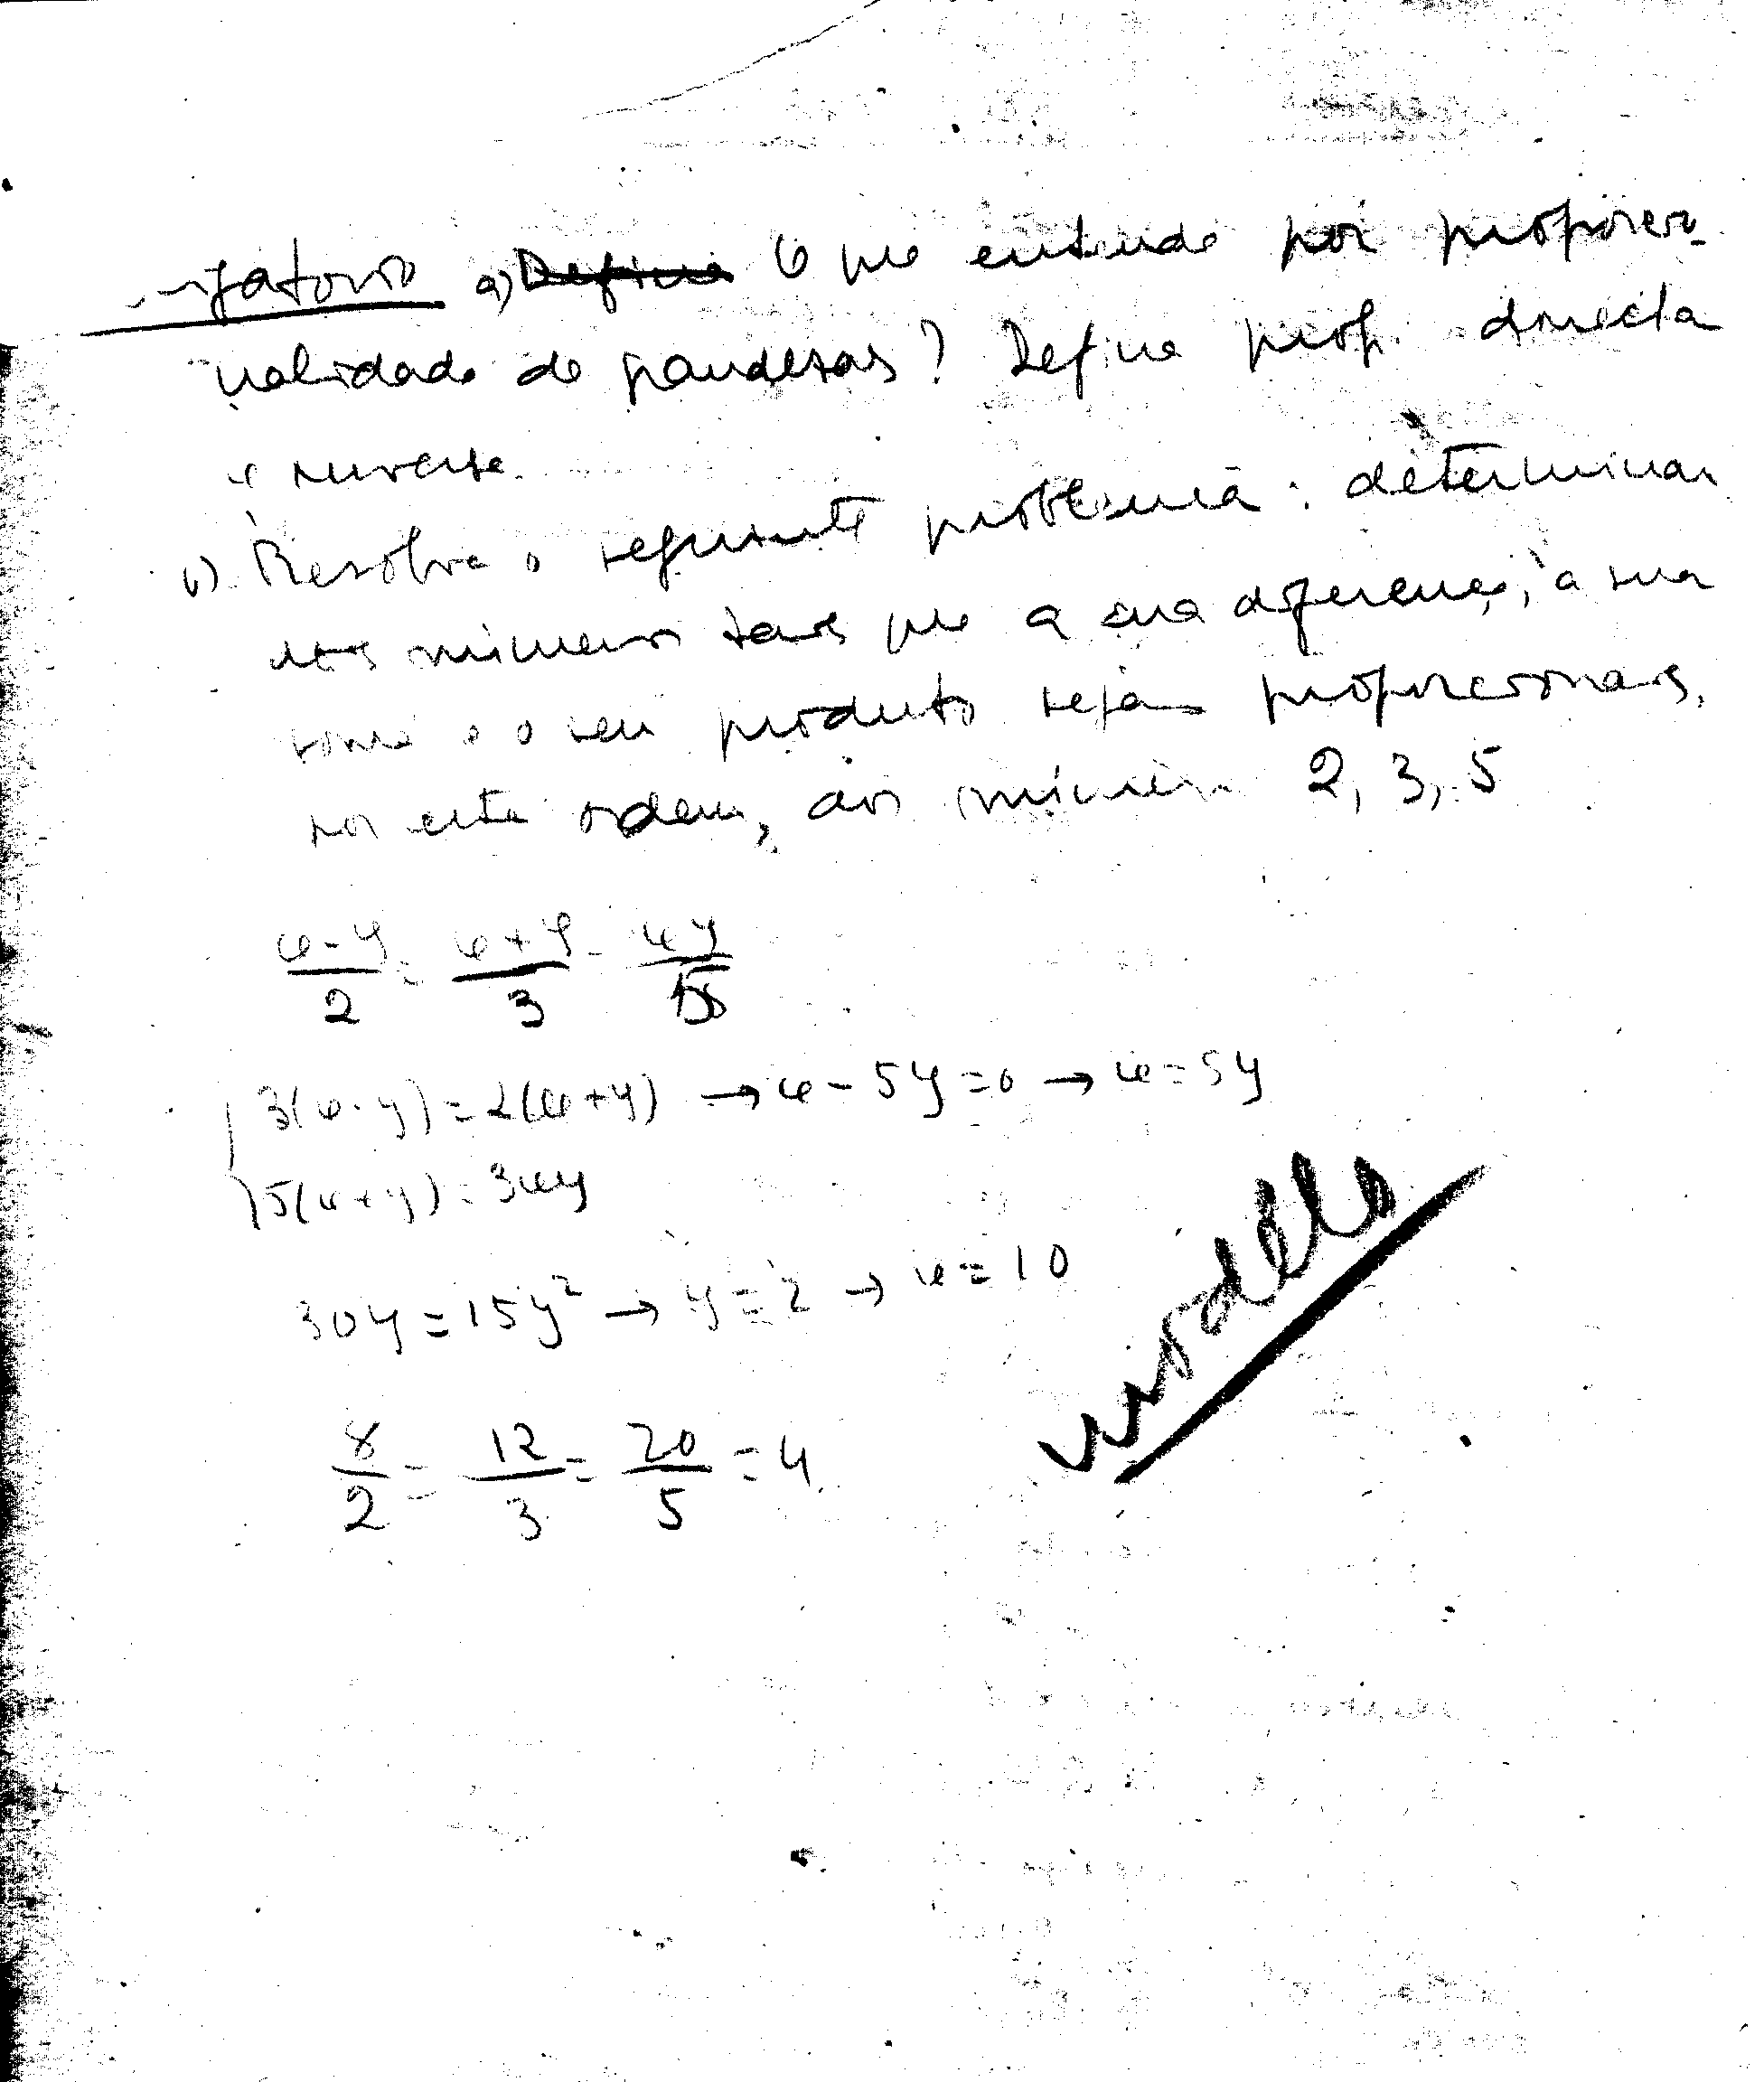 a) Define O que entende por proporcio-
nalidade de grandezas? Defina prop. directa
e inversa.
b) Resolva o seguinte problema: determinar
dois números tais que a sua diferença, a sua
soma e o seu produto sejam proporcionais,
por esta ordem, aos números 2, 3, 5
x-y/2 = x+y/3 = xy/5
3(x-y) = 2(x+y) → x-5y=0 → x=5y
5(x+y) = 3xy
30y = 15y² → y=2 → x=10
8/2 = 12/3 = 20/5 = 4